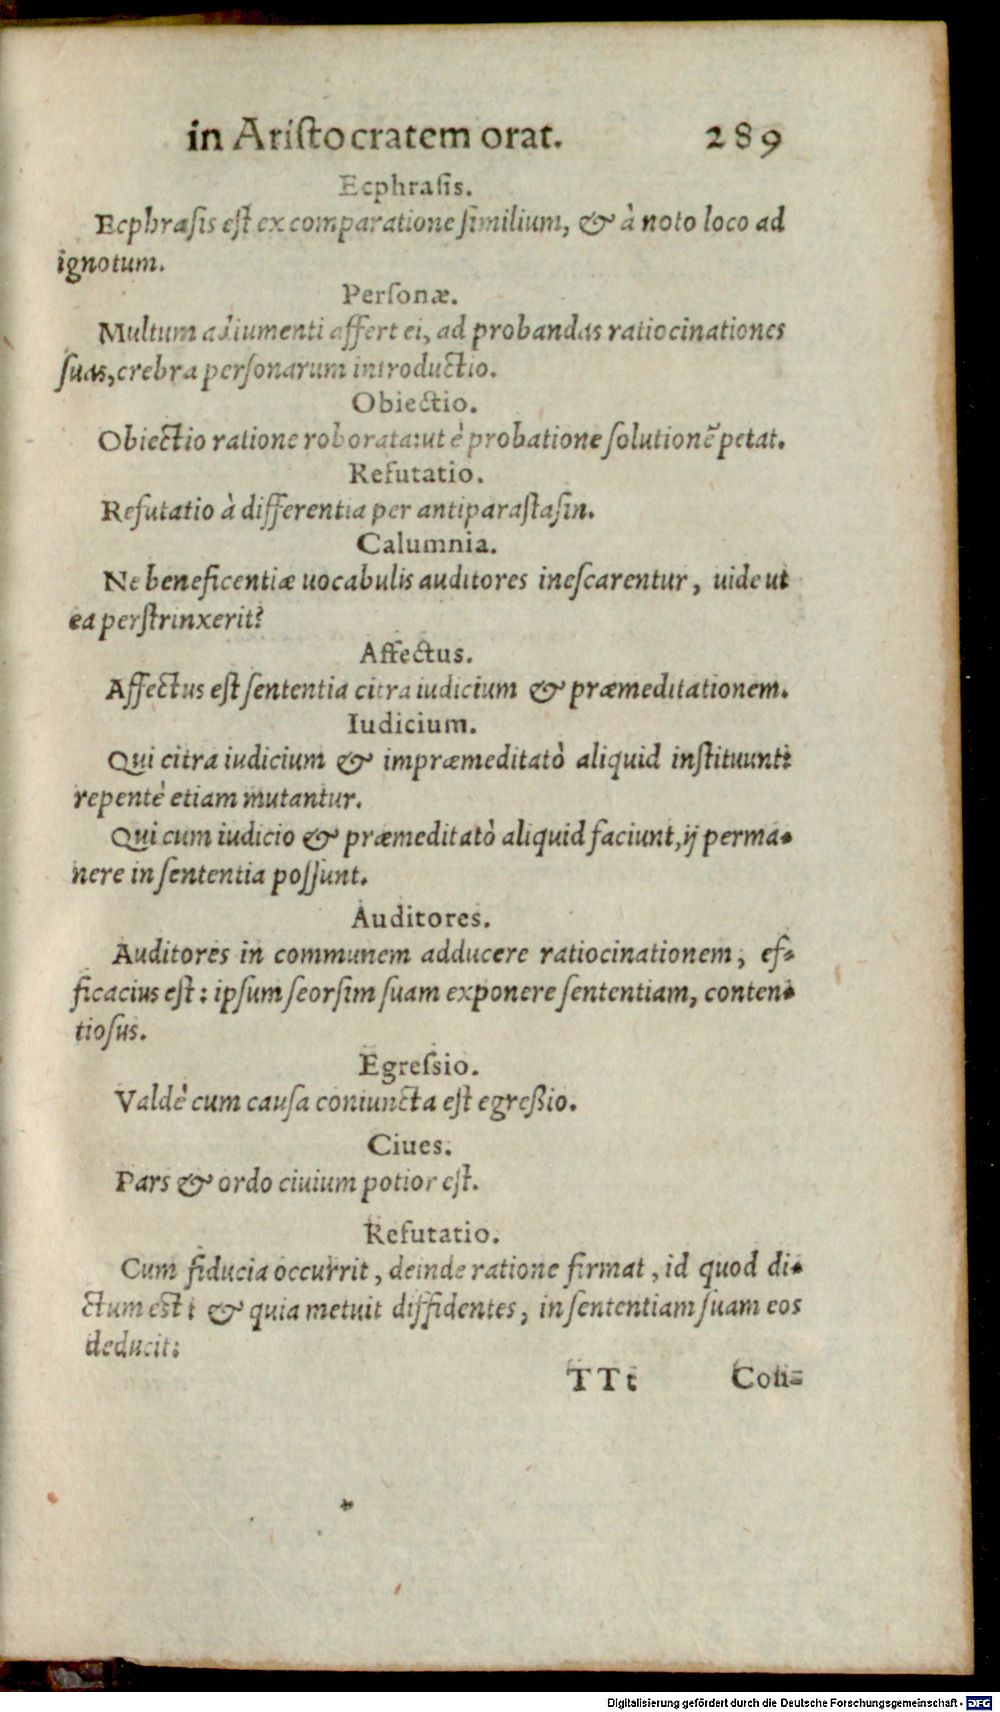 in Aristocratem orat. 289
Ecphrasis.
Ecphrasis est ex comparatione similium, & à noto loco ad
ignotum.
Personæ.
Multum adiumenti affert ei, ad probandas ratiocinationes
suas, crebra personarum introductio.
Obiectio.
Obiectio ratione roborata: ut è probatione solutionē petat.
Refutatio.
Refutatio à differentia per antiparastasin.
Calumnia.
Ne beneficentiæ uocabulis auditores inescarentur, uide ut
ea perstrinxerit?
Affectus.
Affectus est sententia citra iudicium & præmeditationem.
Iudicium.
Qui citra iudicium & impræmeditatò aliquid instituunt:
repentè etiam mutantur.
Qui cum iudicio & præmeditatò aliquid faciunt, ij perma-
nere in sententia possunt.
Auditores.
Auditores in communem adducere ratiocinationem, ef-
ficacius est: ipsum seorsim suam exponere sententiam, conten-
tiosus.
Egressio.
Valdè cum causa coniuncta est egreßio.
Ciues.
Pars & ordo ciuium potior est.
Refutatio.
Cum fiducia occurrit, deinde ratione firmat, id quod di-
ctum est: & quia metuit diffidentes, in sententiam suam eos
deducit:
TTt Con-
Digitalisierung gefördert durch die Deutsche Forschungsgemeinschaft - DFG